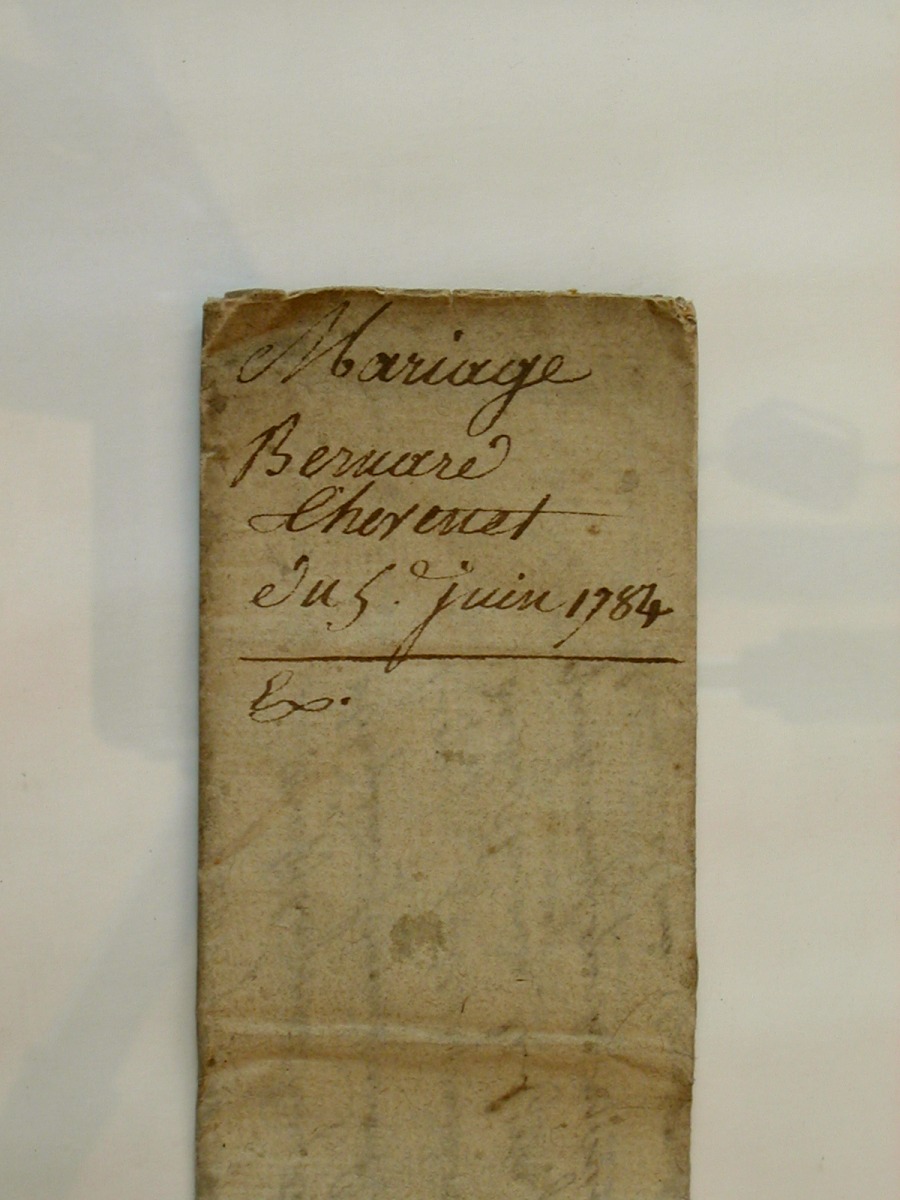 Mariage
Bernard
Chevenet
du 5. juin 1784
Ex.